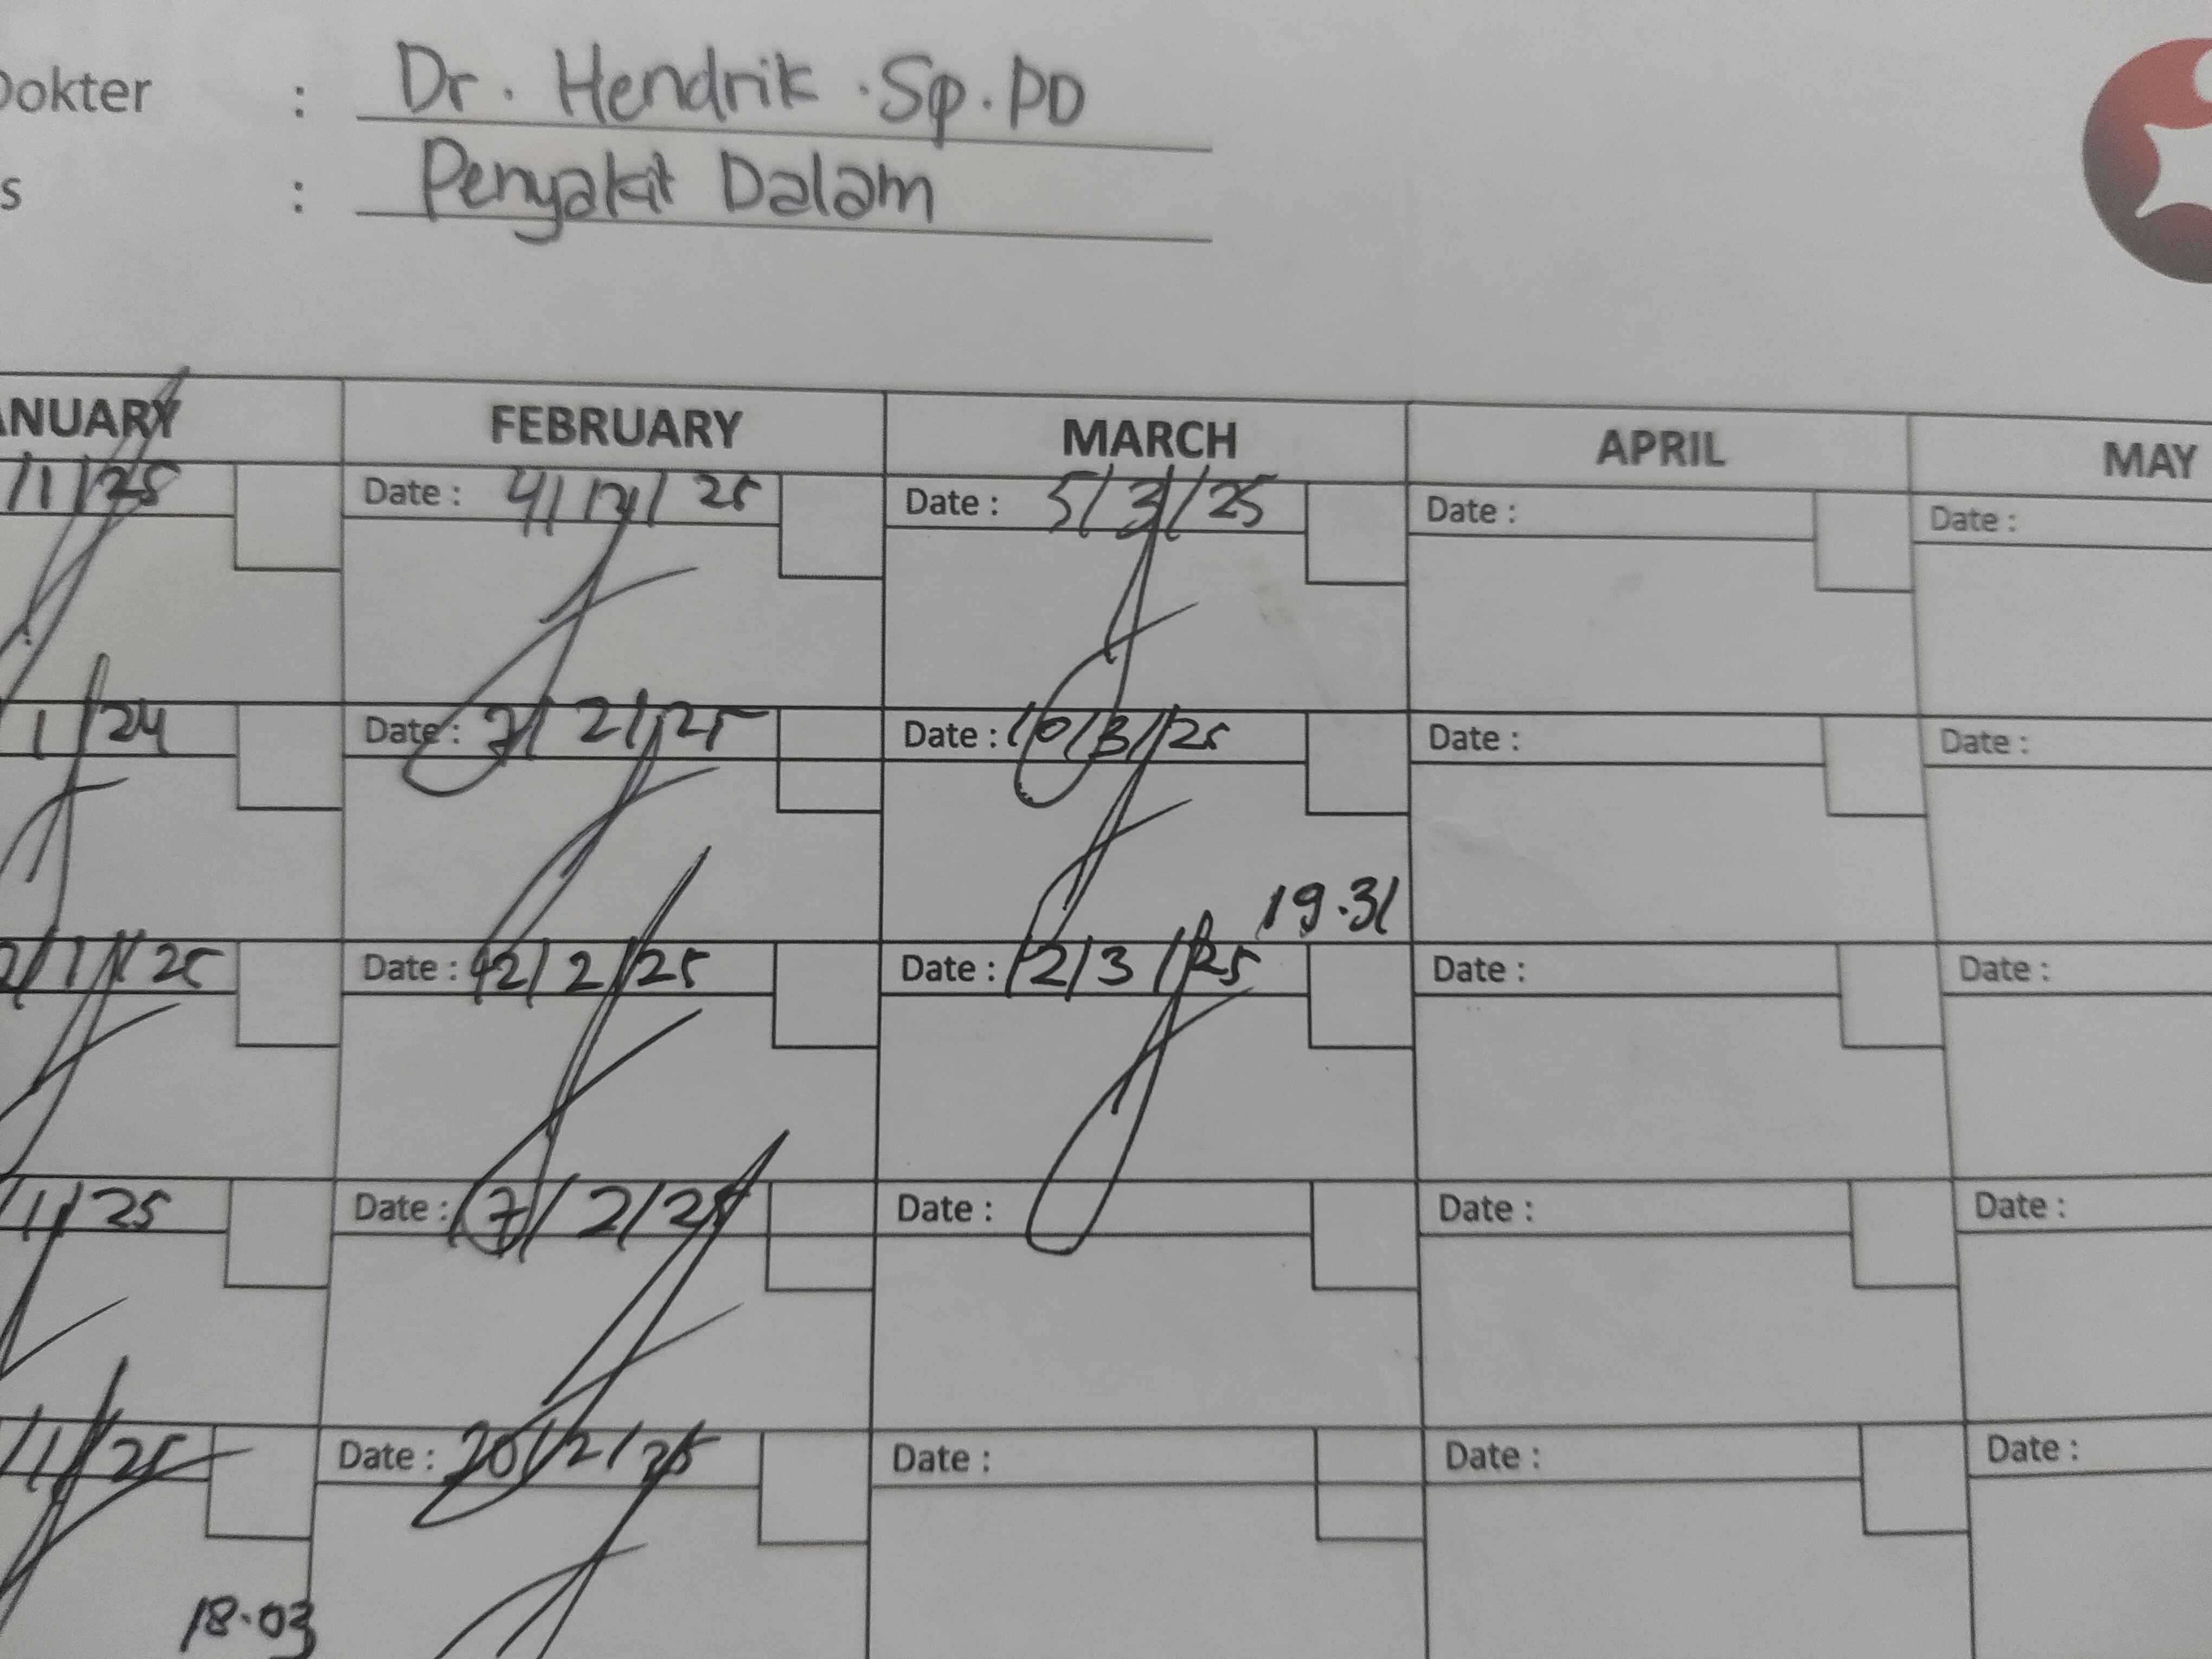 Dokter : Dr. Hendrik .Sp.PD
s : Penyakit Dalam
ANUARY FEBRUARY MARCH APRIL MAY
/1/25 Date : 4/2/25 Date : 5/3/25 Date : Date :
1/24 Date : 7/2/25 Date : 10/3/25 Date : Date :
19.31
2/1/25 Date : 12/2/25 Date : 12/3/25 Date : Date :
/1/25 Date : 17/2/25 Date : Date : Date :
/1/25 Date : 20/2/25 Date : Date : Date :
18.03